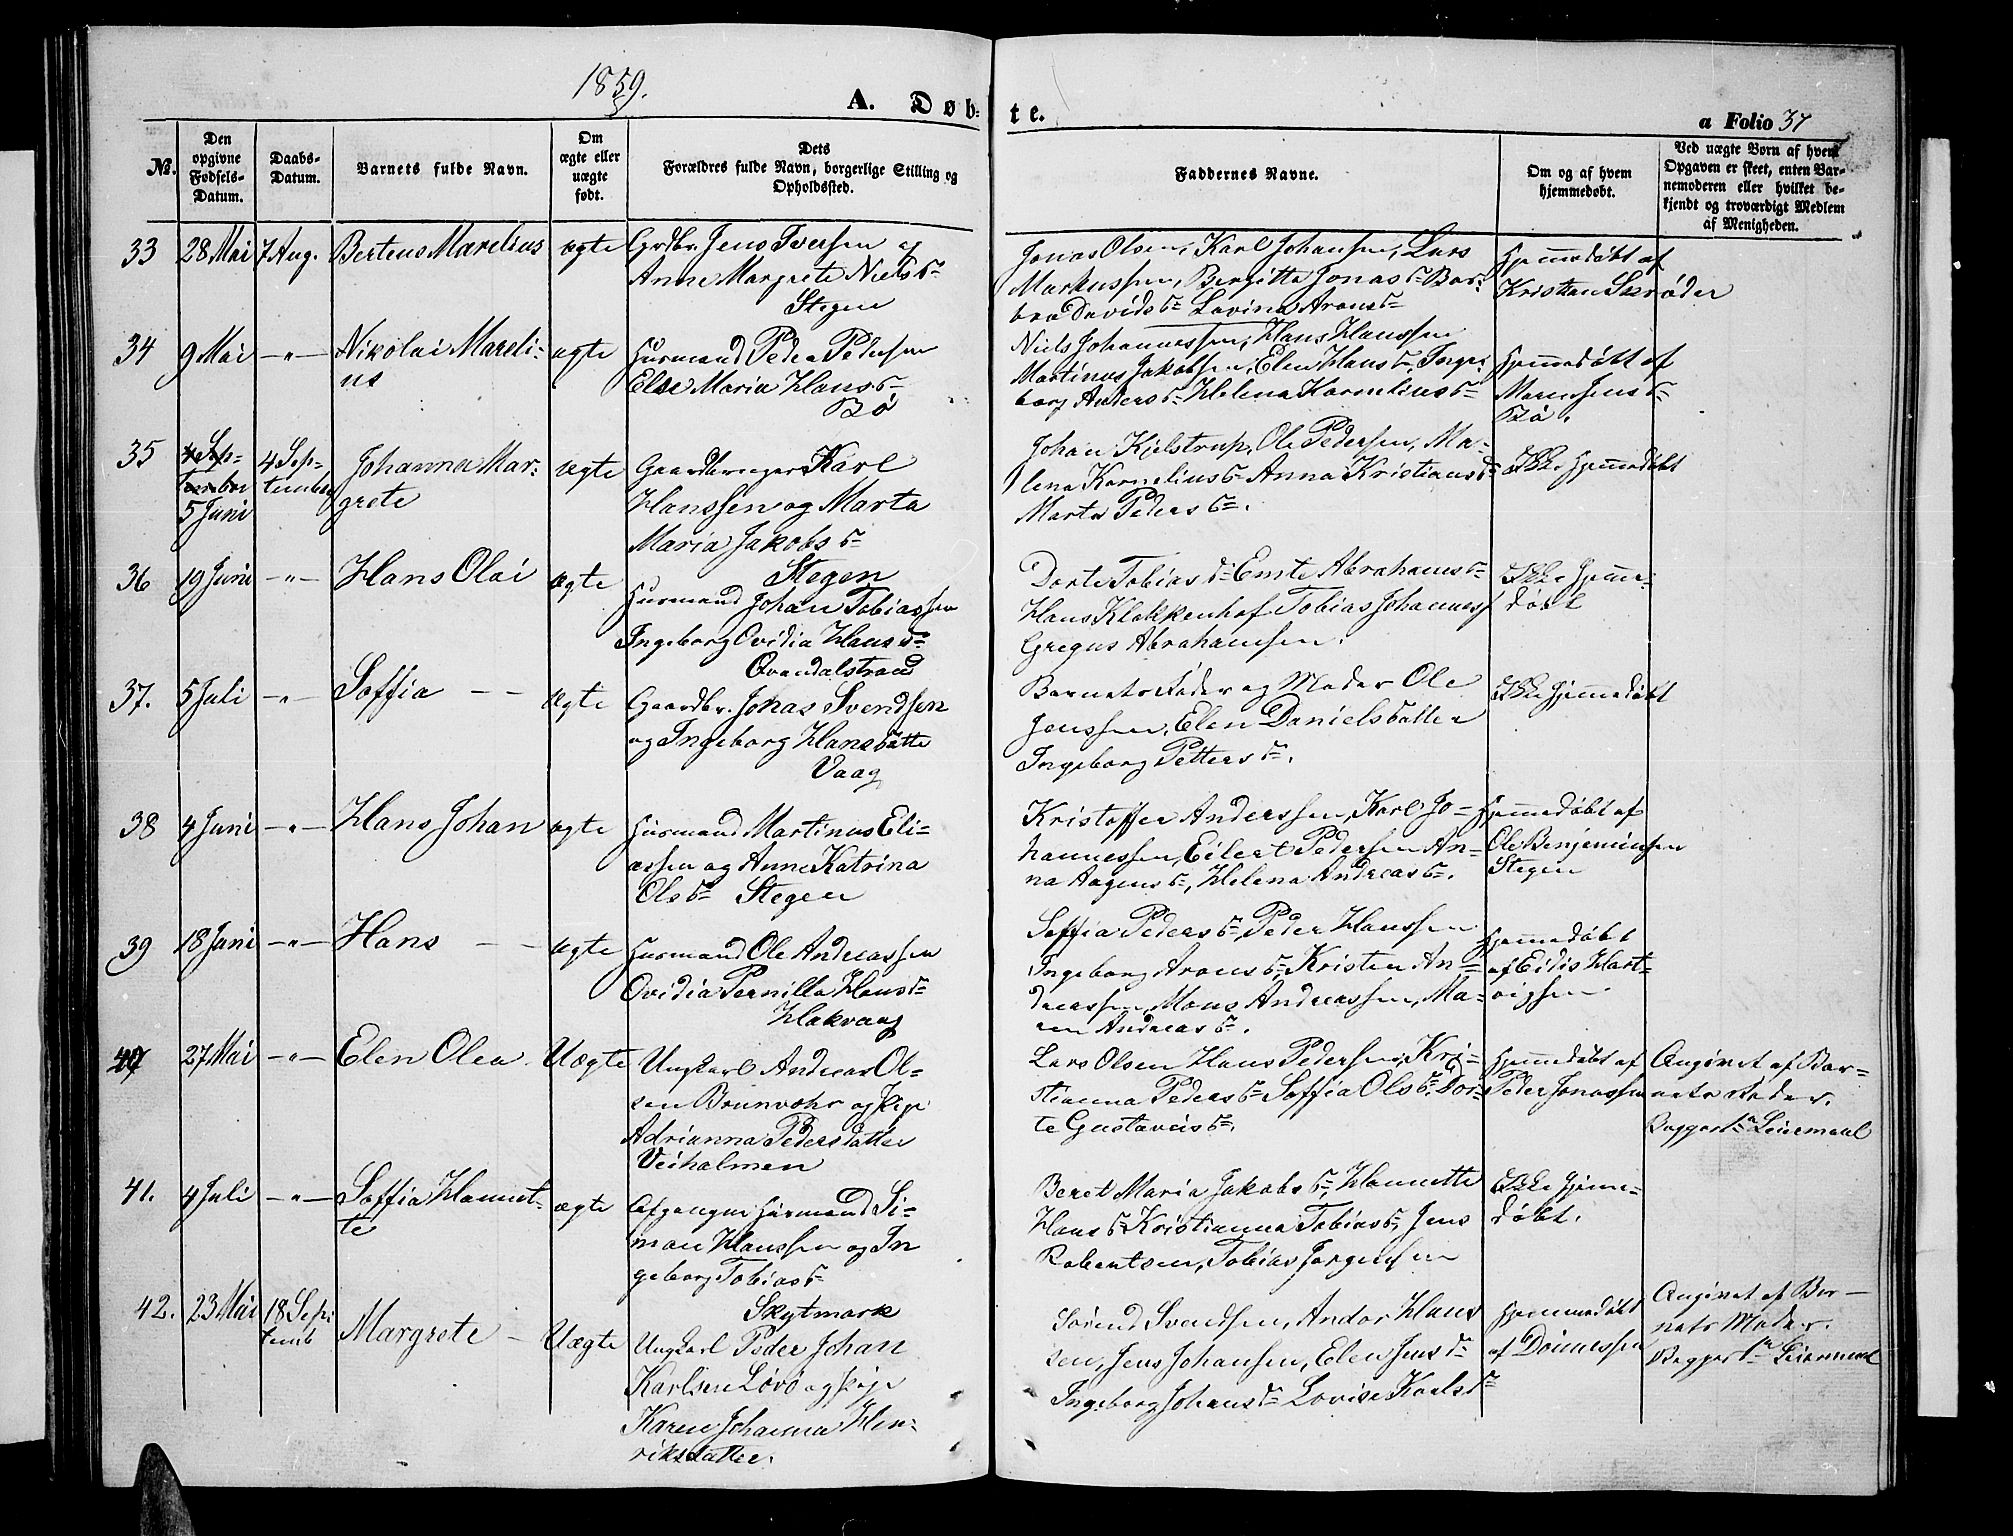 1859.
A. Døb-
te.
a Folio 37
No.
Den opgivne Fødsels-Datum.
Daabs-Datum.
Barnets fulde Navn.
Om ægte eller uægte født.
Dets Forældres fulde Navn, borgerlige Stilling og Opholdssted.
Faddernes Navne.
Om og af hvem hjemmedøbt.
Ved uægte Børn af hvem Opgaven er skeet, enten Barnemoderen eller hvilket bekjendt og troværdigt Medlem af Menigheden.
33 28 Mai 7 Aug. Berteus Marelius ægte Grdbr. Jens Iversen og
Anne Margrete Niels D=
Stegen
Jonas Olsen, Karl Johansen, Lars
Markussen, Bergitta Jonas D= Bar-
bra Davids D= Lovina Arons D=
Hjemmedøbt af
Kristian Skrøder
34 9 Mai -"- Nikolai Mareli-
us
ægte Huusmand Peder Pedersen
Else Maria Hans D=
Bø
Niels Johannessen, Hans Hanssen
Martinus Jakobsen, Elen Hans D=, Inge-
borg Anders D= Helena Kornelius D=
Hjemmedøbt af
Maren Jens D=
Bø.
35 Sep-
tember
5 Juni
4 Sep-
tember
Johanna Mar-
grete
ægte Gaardbruger Karl
Hanssen og Marta
Maria Jakobs D=
Stegen
Johan Kjelstrup, Ole Pedersen, Ma-
lena Kornelius D= Anna Kristians D=
Marta Peders D=.
Ikke hjemmedøbt
36 19 Juni -"- Hans Olai ægte Huusmand Johan Tobiassen
Ingeborg Ovidia Hans D=
Qvandalstrand
Dorte Tobias D= Emte Abrahams D=
Hans Klokkenhof Tobias Johanness
Gregus Abrahamsen.
Ikke hjemme-
døbt
37. 5 Juli -"- Soffia - - ægte Gaardbr. Jonas Svendsen
og Ingeborg Hansdatte
Vaag
Barnets Fader og Moder Ole
Jenssen, Elen Danielsdatter
Ingeborg Petters D=.
Ikke hjemmedøbt
38 4 Juni -"- Hans Johan ægte Huusmand Martinus Eli-
assen og Anne Katrina
Ols D= Stegen
Kristoffer Anderssen, Karl Jo-
hannessen, Eilert Pedersen An-
na Aagens D=, Helena Andreas D=.
Hjemmedøbt af
Ole Benjeminsen
Stegen
39 18 Juni -"- Hans - - ægte Huusmand Ole Andreassen
Ovidia Pernilla Hans D=
Hakvaag
Soffia Peders D=, Peder Hanssen
Ingeborg Arons D=, Kristen An-
dreassen, Mons Andreassen, Ma-
ren Andreas D=.
Hjemmedøbt
af Eidis Hart-
vigsen
40 27 Mai -"- Elen Olea. Uægte Ungkarl Andreas Ol-
sen Brunvohr og Pige
Adrianna Pedersdatter
Veiholmen
Lars Olsen Hans Pedersen, Kri-
stianna Peders D= Soffia Ols D= Dor-
te Gustavus D=.
Hjemmedøbt af
Peder Jonassen
Angivet af Bar-
nets Fader.
Begges 1ste Leiermaal
41. 4 Juli -"- Soffia Hannet-
te
ægte Afgangne Huusmand Si-
mon Hanssen og In
geborg Tobias D=
Skytmark
Beret Maria Jakobs D=, Hannette
Hans D= Kristianna Tobias D= Jens
Robertsen, Tobias Jørgensen
Ikke hjemme-
døbt.
42. 23 Mai 18 Sep-
temb
Margrete - Uægte Ungkarl Peder Johan
Karlsen Løvø og Pige
Karen Johanna Hen-
riksdatter.
Sørend Svendsen, Andor Hans
sen, Jens Johansen, Elen Jens D=
Ingeborg Johans D= Lovise Karls D=
Hjemmedøbt
af Dønnessen
Angivet af Bar-
nets Moder.
Begges 1ste Leiermaal